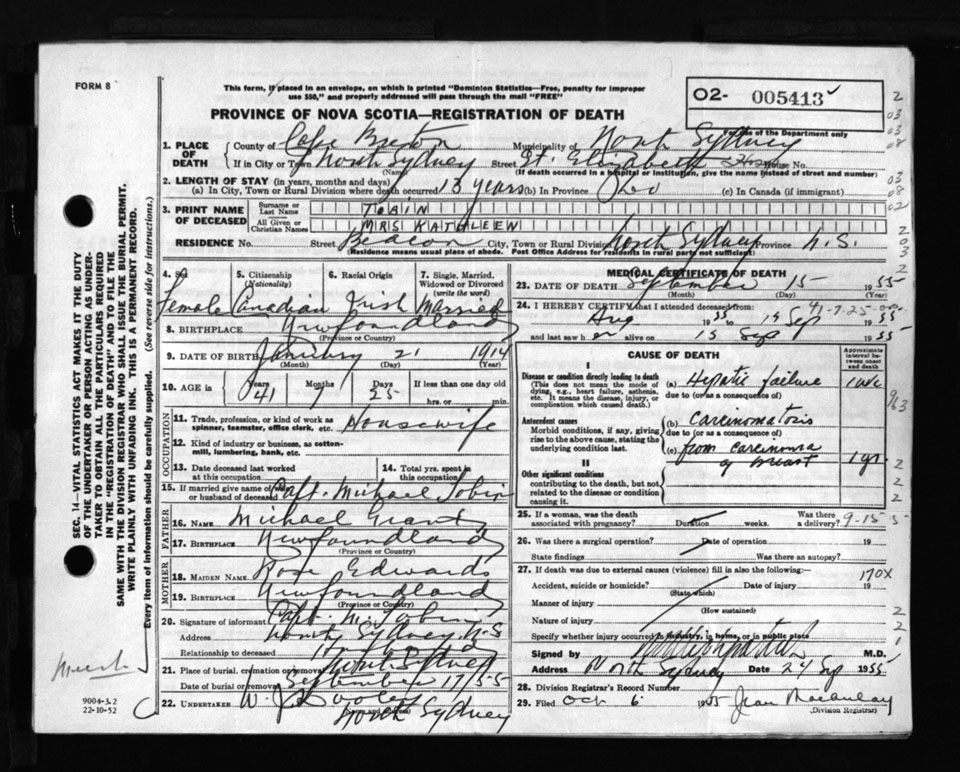 FORM 8
This form, if placed in an envelope, on which is printed "Dominion Statistics—Free, penalty for improper
use $50," and properly addressed will pass through the mail "FREE"
02- 005413
PROVINCE OF NOVA SCOTIA—REGISTRATION OF DEATH
For use of the Department only
1. PLACE OF DEATH
County of Cape Breton Municipality of North Sydney
If in City or Town North Sydney Street St. Elizabeth House No.
(Name) (If death occurred in a hospital or institution, give the name instead of street and number)
2. LENGTH OF STAY (in years, months and days)
(a) In City, Town or Rural Division where death occurred 13 years (b) In Province Do (c) In Canada (if immigrant)
3. PRINT NAME OF DECEASED
Surname or Last Name TOBIN
All Given or Christian Names MRS KATHLEEN
RESIDENCE No. Street Beacon City, Town or Rural Division North Sydney Province N.S.
(Residence means usual place of abode. Post Office Address for residents in rural parts not sufficient)
4. Female
5. Citizenship (Nationality) Canadian
6. Racial Origin Irish
7. Single, Married, Widowed or Divorced (write the word) Married
8. BIRTHPLACE Newfoundland
(Province or Country)
9. DATE OF BIRTH January 21 1914
(Month) (Day) (Year)
10. AGE in Years 41 Months 7 Days 25 If less than one day old
hrs. or min.
OCCUPATION
11. Trade, profession, or kind of work as spinner, teamster, office clerk, etc. Housewife
12. Kind of industry or business, as cotton-mill, lumbering, bank, etc.
13. Date deceased last worked at this occupation
14. Total yrs. spent in this occupation
15. If married give name of or husband of deceased Capt. Michael Tobin
FATHER
16. NAME Michael Grant
17. BIRTHPLACE Newfoundland
(Province or Country)
MOTHER
18. MAIDEN NAME Rose Edwards
19. BIRTHPLACE Newfoundland
(Province or Country)
20. Signature of informant Capt. M. Tobin
Address North Sydney N.S
Relationship to deceased Husband
21. Place of burial, cremation or removal North Sydney
Date of burial or removal September 17/55
22. UNDERTAKER W. J. Dooley
North Sydney
9004-3.2
22-10-52
SEC. 14—VITAL STATISTICS ACT MAKES IT THE DUTY
OF THE UNDERTAKER OR PERSON ACTING AS UNDERTAKER TO OBTAIN ALL THE PARTICULARS REQUIRED
IN THE "REGISTRATION OF DEATH" AND TO FILE THE
SAME WITH THE DIVISION REGISTRAR WHO SHALL ISSUE THE BURIAL PERMIT.
WRITE PLAINLY WITH UNFADING INK. THIS IS A PERMANENT RECORD.
Every item of information should be carefully supplied. (See reverse side for instructions.)
MEDICAL CERTIFICATE OF DEATH
23. DATE OF DEATH September 15 1955
(Month) (Day) (Year)
24. I HEREBY CERTIFY that I attended deceased from
Aug 1955 to 15 Sep 1955
and last saw her alive on 15 Sep 1955
CAUSE OF DEATH
Approximate interval between onset and death
I
Disease or condition directly leading to death
(This does not mean the mode of dying, e.g., heart failure, asthenia, etc. It means the disease, injury, or complication which caused death.)
(a) Hepatic failure 1 wk
due to (or as a consequence of)
Antecedent causes
Morbid conditions, if any, giving rise to the above cause, stating the underlying condition last.
(b) Carcinomatosis
due to (or as a consequence of)
(c) from carcinoma
of breast 1 yr.
II
Other significant conditions
contributing to the death, but not related to the disease or condition causing it.
25. If a woman, was the death associated with pregnancy? Duration weeks. Was there a delivery?
9-15-5
26. Was there a surgical operation? Date of operation 19
State findings Was there an autopsy?
27. If death was due to external causes (violence) fill in also the following:—
170X
Accident, suicide or homicide? Date of injury 19
(State which)
Manner of injury
(How sustained)
Nature of injury
Specify whether injury occurred in industry, in home, or in public place
Signed by M.D.
Address North Sydney Date 24 Sep 1955
28. Division Registrar's Record Number
29. Filed Oct 6 1955 Jean Macaulay
(Division Registrar)